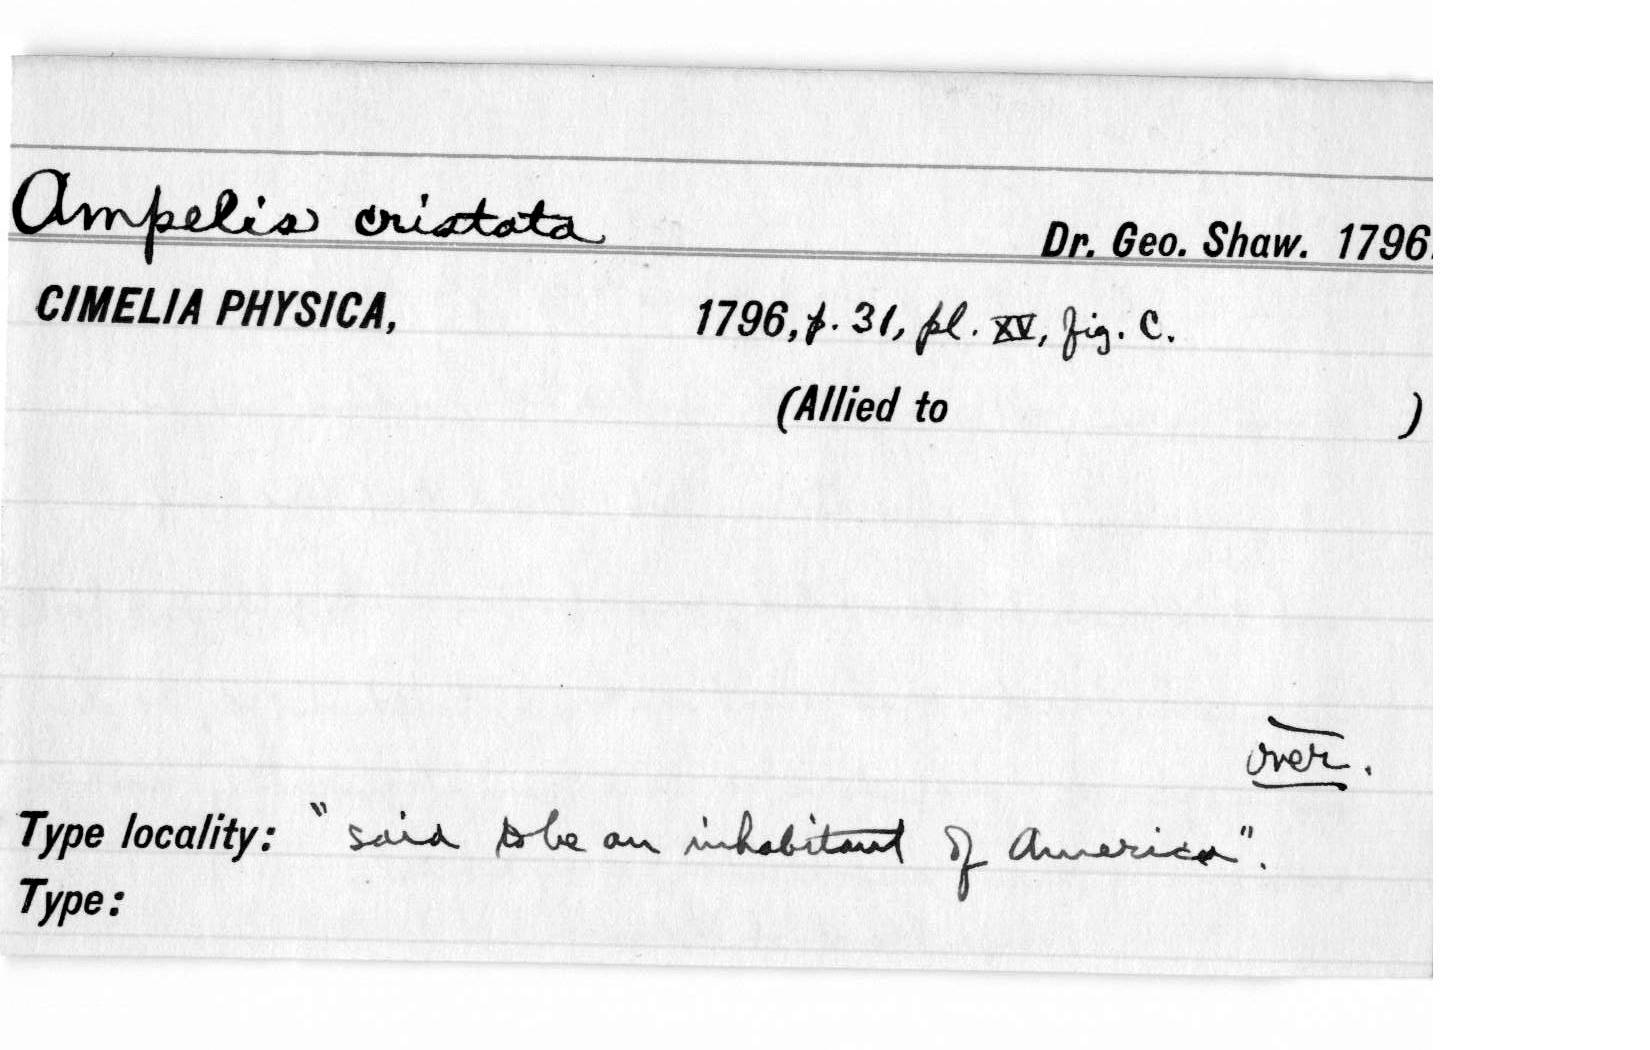 Ampelis cristata
Dr. Geo. Shaw. 1796.
CIMELIA PHYSICA, 1796, p. 31, pl. XV, fig. C.
(Allied to )
over.
Type locality: "said to be an inhabitant of America".
Type: